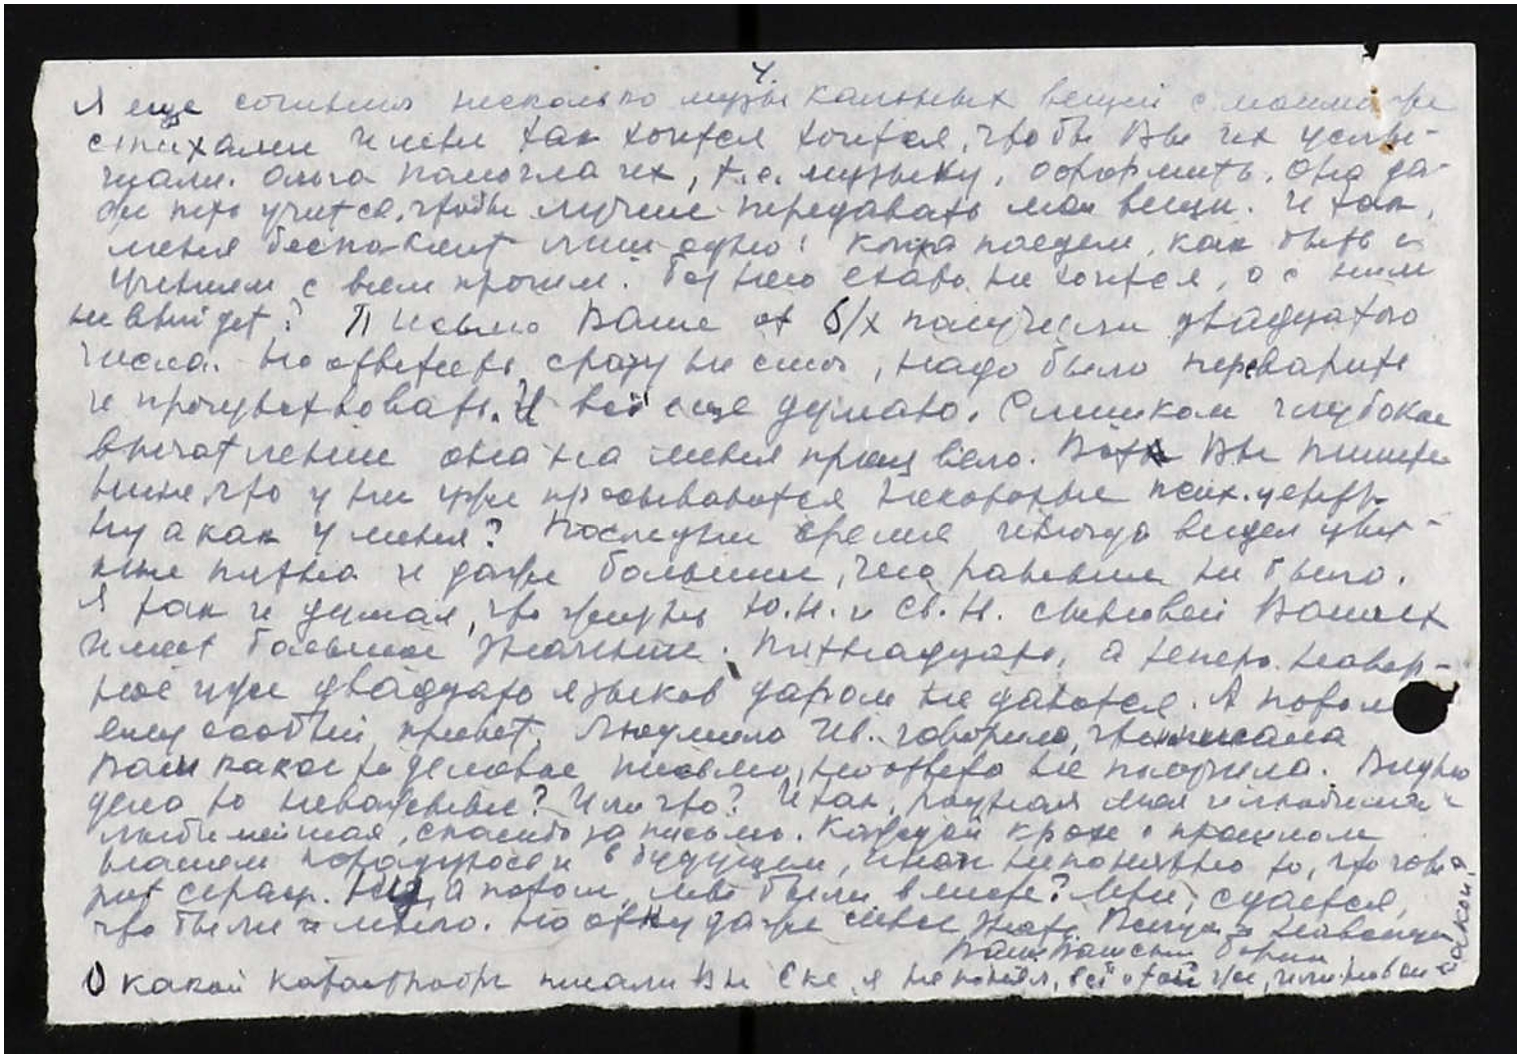 4.
Я еще сочинил несколько музыкальных вещей с моими же
стихами и мне так хочется хочется, чтобы Вы их услы-
шали. Ольга помогла их, т.е. музыку, оформить. Она да-
же петь учится, чтобы лучше передавать мои вещи. И так,
меня беспокоит лишь одно: когда поедем, как быть с
учением с всем прочим. Без него ехать не хочется, а с ним
не выйдет? Письмо Ваше от 5/X получили двадцатого
числа. Но ответить сразу не смог, надо было переварить
и прочувствовать. И всё еще думаю. Слишком глубокое
впечатление оно на меня произвело. Вы пишете
что у уже просыпаются некоторые псих. центры
Ну а как у меня? Последнее время иногда видел цвет-
ные пятна и даже большие, чего раньше не было.
Я так и думал, что Ю.Н. и Св. Н. сыновей Ваших
имеет большое значение. Пятнадцать, а теперь навер-
ное уже двадцать языков даром не даются. А потом
ему особый привет. Людмила Ив. говорила, что писала
Вам какое то деловое письмо, но ответа не получила. Видно
дело то неважное? Или что? Итак, родная моя и любимая и
любимейшая, спасибо за письмо. Каждой крохе о прошлом
нашем порадуюсь и в будущем, иначе непонятно то, что гово-
рит сердце. а потом, мы были вместе? Мне, сдается,
что были и много. Но откуда же мне знать. Всегда и навсегда
Ваш Борис
О какой катастрофе писали Вы я не понял, всё о той же, или новой
какой?